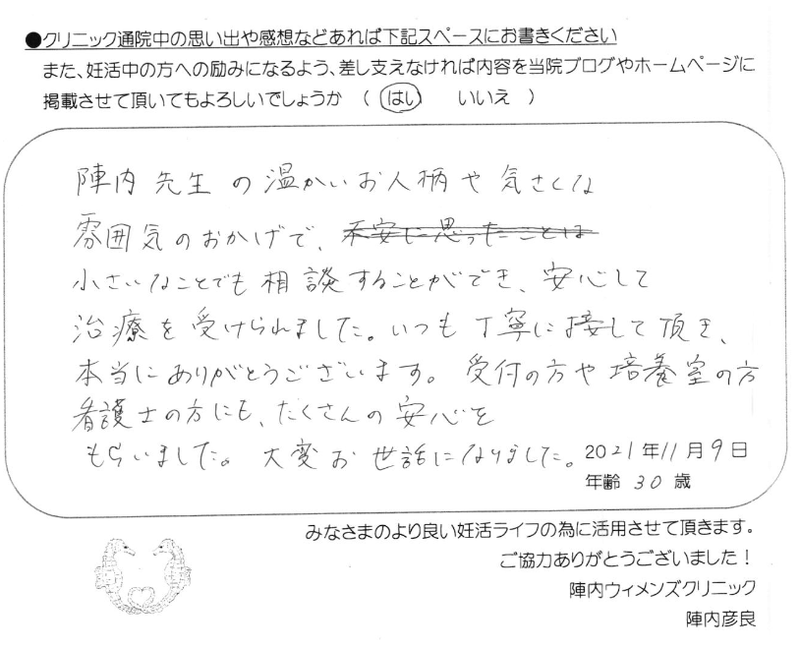 ●クリニック通院中の思い出や感想などあれば下記スペースにお書きください
また、妊活中の方への励みになるよう、差し支えなければ内容を当院ブログやホームページに
掲載させて頂いてもよろしいでしょうか （ はい　いいえ ）
陣内先生の温かいお人柄や気さくな
雰囲気のおかげで、不安に思ったことは
小さいなことでも相談することができ、安心して
治療を受けられました。いつも丁寧に接して頂き、
本当にありがとうございます。受付の方や培養室の方
看護士の方にも、たくさんの安心を
もらいました。大変お世話になりました。
2021年11月9日
年齢 30 歳
みなさまのより良い妊活ライフの為に活用させて頂きます。
ご協力ありがとうございました！
陣内ウィメンズクリニック
陣内彦良